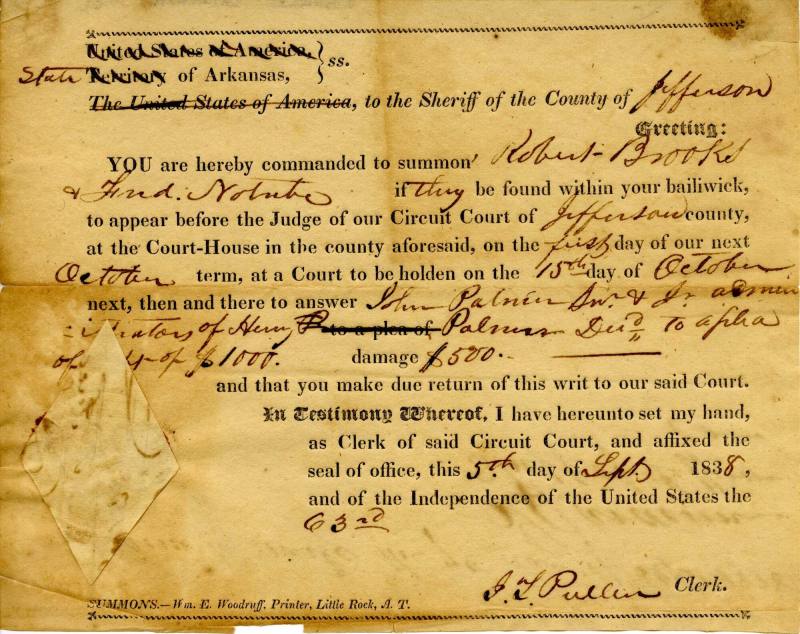 United States of America, } ss.
State Territory of Arkansas,
The United States of America, to the Sheriff of the County of Jefferson
Greeting:
YOU are hereby commanded to summon Robert Brooks
& Fred. Notrebe if they be found within your bailiwick,
to appear before the Judge of our Circuit Court of Jefferson county,
at the Court-House in the county aforesaid, on the first day of our next
October term, at a Court to be holden on the 15th day of October
next, then and there to answer John Palmer Snr. & Jr admin
istrators of Henry P to a plea of, Palmer Decd to a plea
of of $1000. damage $500.
and that you make due return of this writ to our said Court.
In Testimony Whereof, I have hereunto set my hand,
as Clerk of said Circuit Court, and affixed the
seal of office, this 5th day of Sept 1838,
and of the Independence of the United States the
63rd
J. T. Pullen Clerk.
SUMMONS.—Wm. E. Woodruff, Printer, Little Rock, A. T.